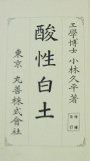 工學博士 小林久平著
酸性白土
東京 丸善株式會社